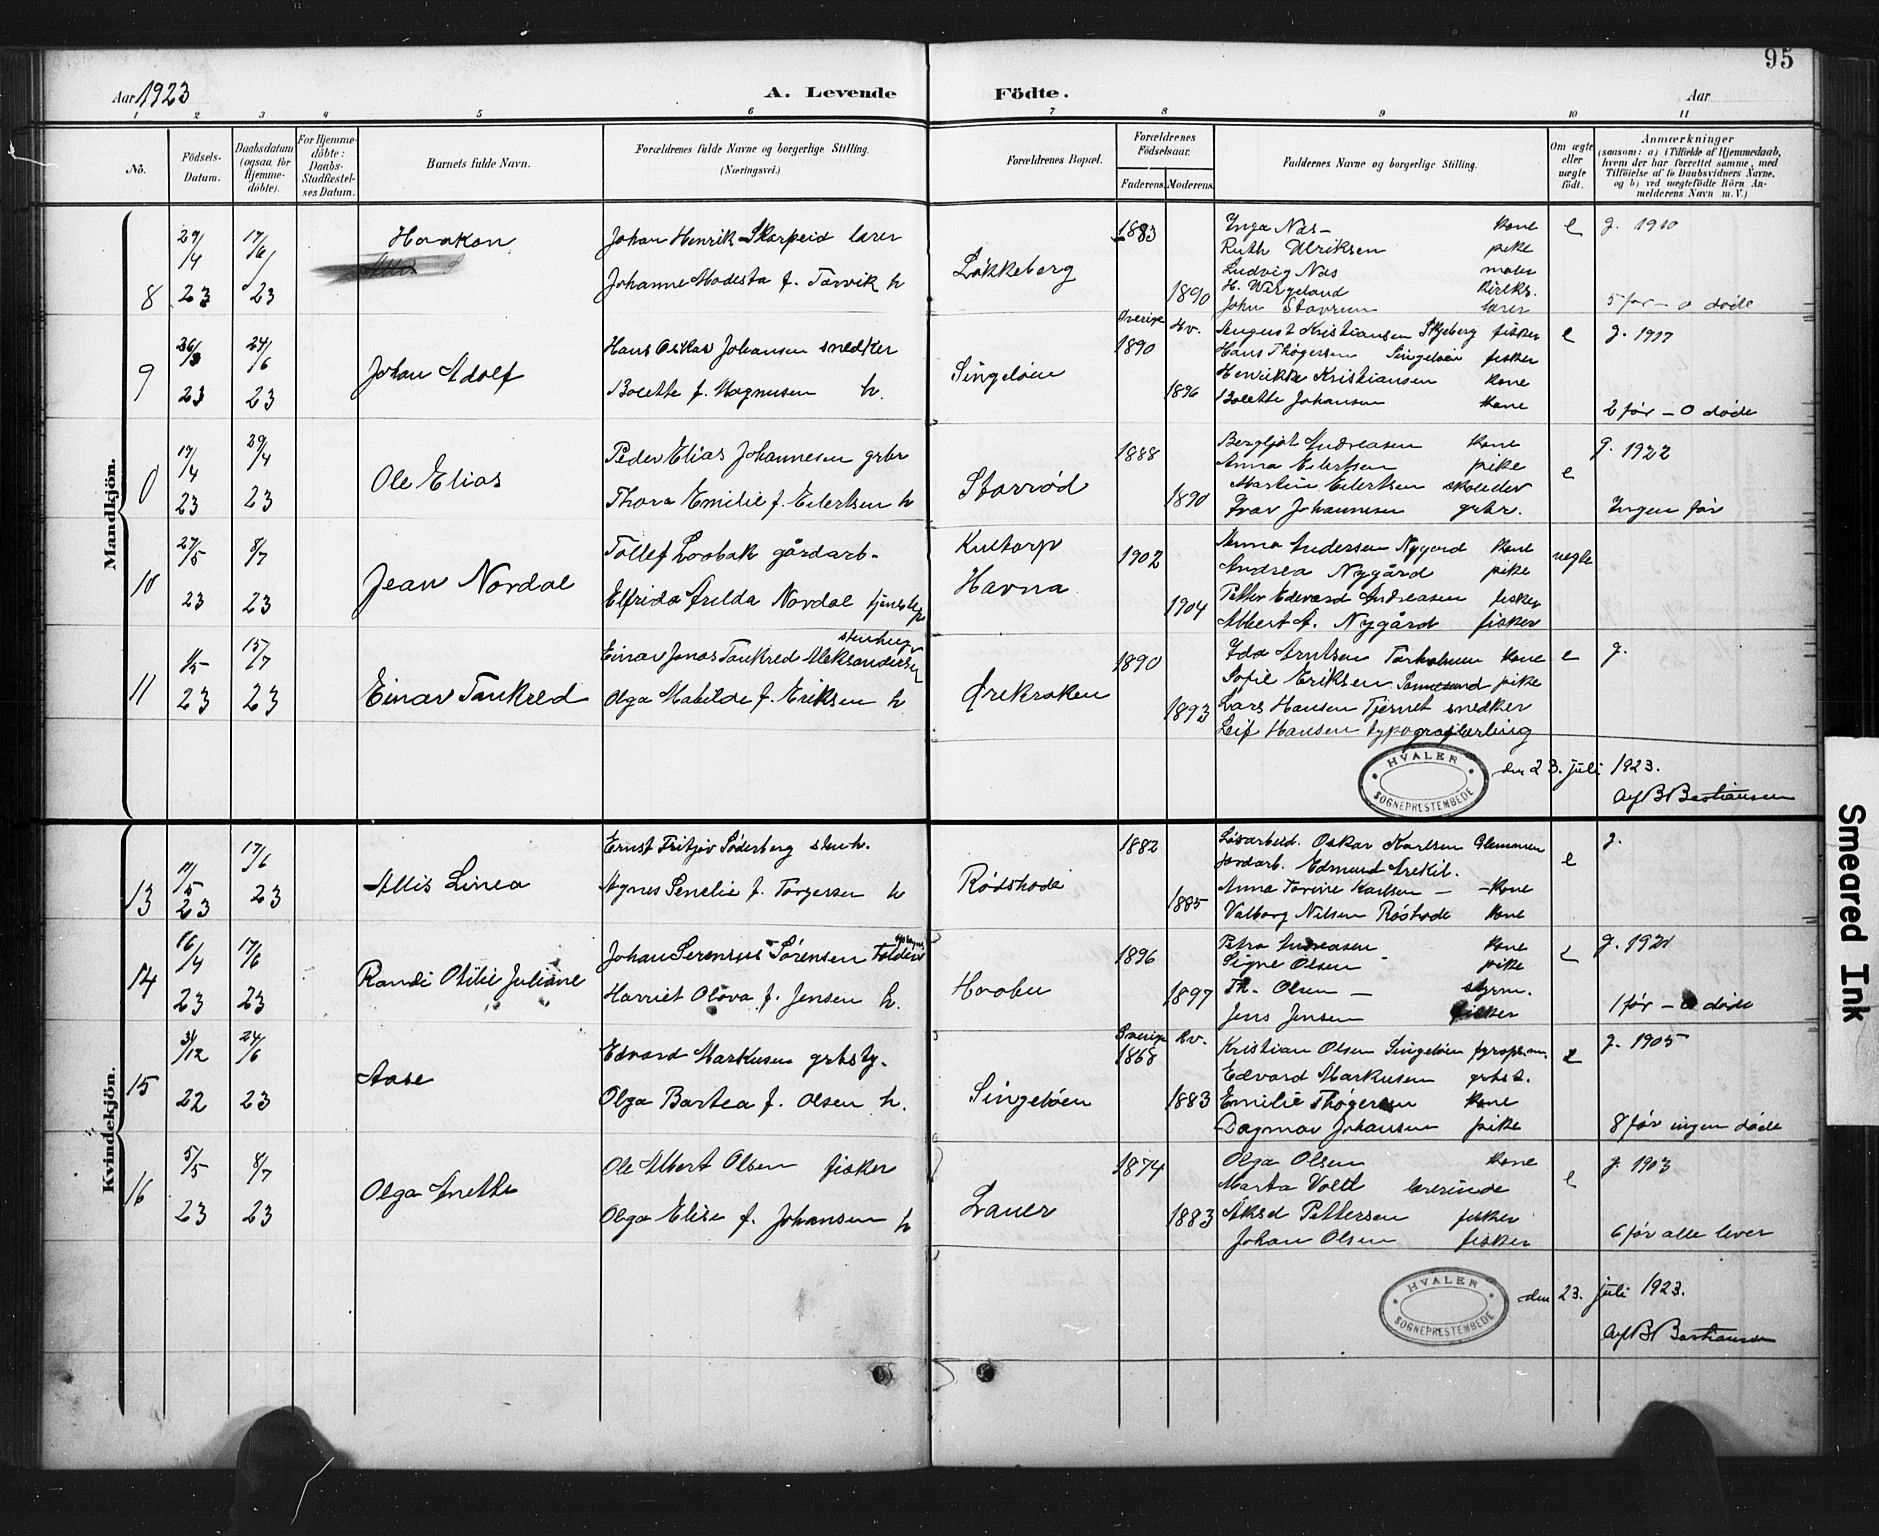 95
Aar 1923
A. Levende Födte.
Aar
1 2 3 4 5 6 7 8 9 10 11
No.
Födsels-Datum.
Daabsdatum (ogsaa for Hjemme-döbte).
For Hjemme-döbte: Daabs-Stadfæstel-ses Datum.
Barnets fulde Navn.
Forældrenes fulde Navne og borgerlige Stilling. (Næringsvei.)
Forældrenes Bopæl.
Forældrenes Födselsaar.
Faderens. Moderens.
Faddernes Navne og borgerlige Stilling.
Om ægte eller uægte födt.
Anmærkninger
(saasom: a) i Tilfælde af Hjemmedaab, hvem der har forrettet samme, med Tilföielse af to Daabsvidners Navne, og b) ved uægtefödte Börn An-melderens Navn m. V.)
Mandkjön.
8
29/4 23
17/6 23
Haakon
Johan Henrik Skarpeid lærer
Johanne Modesta f. Tarvik h
Løkkeberg
1883
1890
Inga Næs – kone
Ruth Ulriksen pike
Ludvig Næs maler
H. Wergeland
John Stavrum lærer
e
g. 1910
5 før – 0 døde
9
26/3 23
24/6 23
Johan Adolf
Hans Oskar Johansen snedker
Bolette f. Magnusen h.
Singeløen
Sverige Hv.
1890
1896
August Kristiansen Skjeberg fisker
Hans Thøgersen Singeløen fisker
Henrikke Kristiansen kone
Bolette Johansen kone
e
g. 1917
2 før – 0 døde
0
17/4 23
29/4 23
Ole Elias
Peder Elias Johannesen grbr
Thora Emilie f. Eilertsen h
Storrød
1888
1890
Bergljot Andreasen kone
Anna Eilertsen pike
Martin Eilertsen skoleelev
Ivar Johannesen grbr.
e
g. 1922
Ingen før
10
27/5 23
8/7 23
Jean Nordal
Tollef Loobak gårdarb.
Elfrida Arilda Nordal
Kultorp
Havna
1902
1904
Anna Andersen Nygård kone
Andrea Nygård pike
Petter Edevard Andreasen fisker
Albert A. Nygård fisker
uegte
11
1/5 23
15/7 23
Einar Tankred
stenhugr
Einar Jonas Tankred Aleksandersen
Olga Mathilde f. Eriksen h
Ørekroken
1890
1893
Ida Arntsen Tarholmen kone
Sofie Eriksen pike
Lars Hansen Tjernet snedker
Leif Hansen typograflærling
e
g.
HVALER SOGNEPRESTEMBEDE
den 23. juli 1923.
Axf B Bastiansen
Kvindekjön.
13
11/5 23
17/6 23
Allis Linea
Ernst Fritjov Søderberg stenh.
Agnes Senelie f. Torgersen h
Rødshode
1882
1885
Løsarbeid. Oskar Karlsen Glemmen
jordarb. Edmund Arekil.
Anna Torine Karlsen – kone
Valborg Nilsen Røshode kone
e
g.
14
16/4 23
17/6 23
Randi Otilie Juliane
Johan Serenius Sørensen
Harriet Olava f. Jensen h.
1896
1897
Petra Andreasen kone
Signe Olsen – pike
Th. Olsen – styrm.
Jens Jensen fisker
e
g. 1921
1 før – 0 døde
15
31/12 22
24/6 23
Aase
Edvard Markusen
Olga Bartea f. Olsen h.
Singeløen
Sverige Hv.
1868
1883
Kristian Olsen Singeløen
Edvard Markusen
Emilie Thøgersen kone
Dagmar Johansen pike
e
g. 1905
8 før ingen døde
16
5/5 23
8/7 23
Olga Anette
Ole Albert Olsen fisker
Olga Elise f. Johansen h
Lauer
1874
1883
Olga Olsen kone
Marta Vold lærerinde
Aksel Pettersen fisker
Johan Olsen fisker
e
g. 1903
6 før alle lever
HVALER SOGNEPRESTEMBEDE
den 23. juli 1923.
Axf B Bastiansen
Smeared Ink